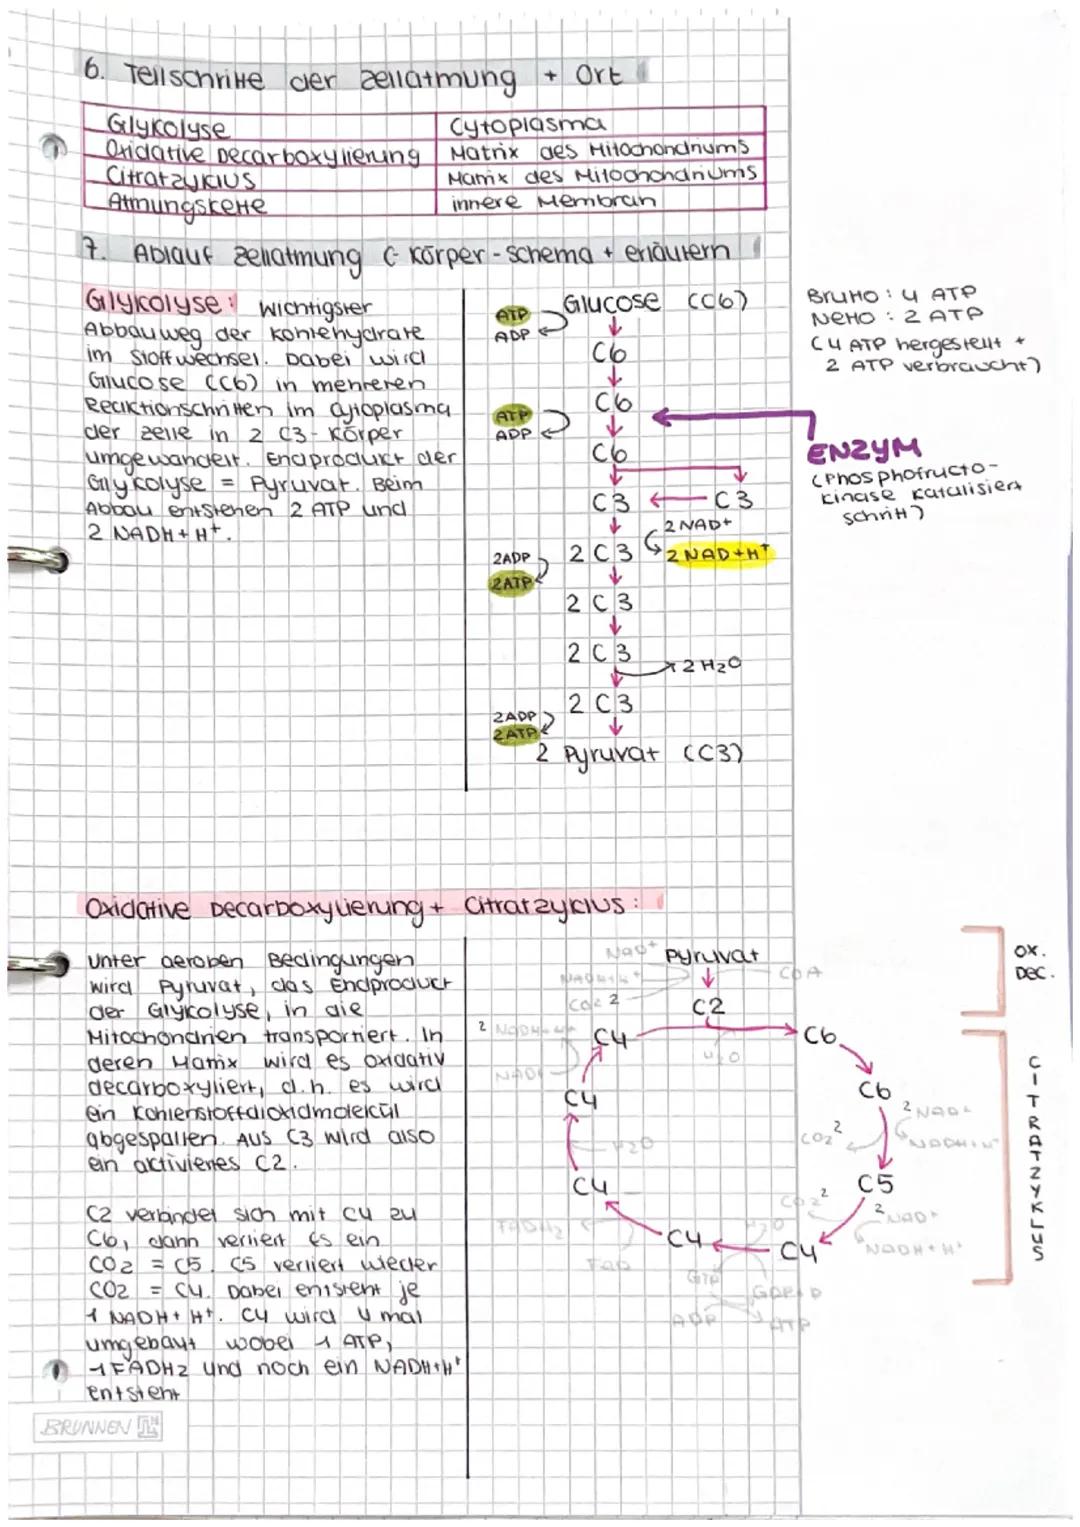 6. Teilschritte der Zellatmung + Ort
Glykolyse Cytoplasma
Oxidative Decarboxylierung Matrix des Mitochondriums
Citratzyklus Matrix des Mitochondriums
Atmungskette innere Membran
7. Ablauf Zellatmung C-Körper-Schema + erläutern
Glykolyse: Wichtigster
Abbauweg der Kohlehydrate
im Stoffwechsel. Dabei wird
Glucose (C6) in mehreren
Reaktionschritten im Cytoplasma
der Zelle in 2 C3-Körper
umgewandelt. Endprodukt der
Glykolyse = Pyruvat. Beim
Abbau entstehen 2 ATP und
2 NADH+H+.
Glucose (C6)
ATP
ADP
C6
C6
ATP
ADP
C6
C3 C3
2 NAD+
2 C3 2 NAD+H+
2ADP
2ATP
2 C3
2 C3
2 H2O
2 C3
2ADP
2ATP
2 Pyruvat (C3)
Brutto: 4 ATP
Netto: 2 ATP
(4 ATP hergestellt +
2 ATP verbraucht)
ENZYM
(Phosphofructo-
kinase katalisiert
schritt)
Oxidative Decarboxylierung + Citratzyklus:
Unter aeroben Bedingungen
wird Pyruvat, das Endproduct
der Glykolyse, in die
Mitochondrien transportiert. In
deren Matrix wird es oxidativ
decarboxyliert, d.h. es wird
ein Kohlenstoffdioxidmolekül
abgespalten. Aus C3 wird also
ein aktiviertes C2.
C2 verbindet sich mit C4 zu
C6, dann verliert es ein
CO2 = C5. C5 verliert wieder
CO2 = C4. Dabei entsteht je
1 NADH+H+. C4 wird 4 mal
umgebaut wobei 1 ATP,
1 FADH2 und noch ein NADH+H+
entsteht
NAD+ Pyruvat
NADH+H+ CoA
CO2 2 C2
2 NADH+H+ C4 C6
H2O
NAD+
C4 C6
2 NAD+
CO2 2 NADH+H+
H2O
C4 C5
CO2 2
2 NAD+
FADH2 H2O
C4 C4 NADH+H+
FAD
GTP GDP+P
ADP ATP
OX.
DEC.
CITRATZYKLUS
BRUNNEN